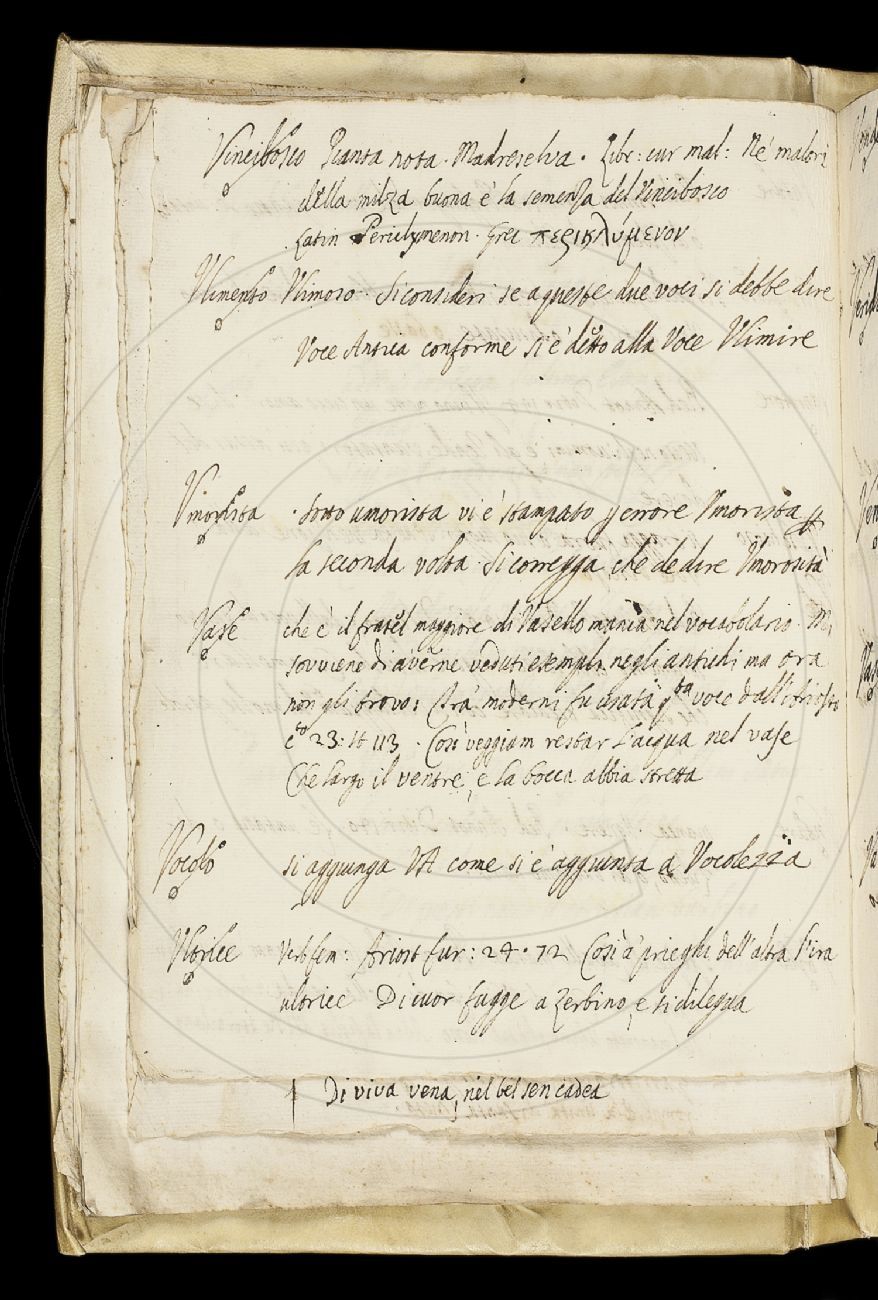 Vincibosco Pianta nota. Madreselva. Libr: cur mal: Ne' malori
della milza buona è la semenza del Vincibosco
Latin Periclymenon. Grec περικλύμενον
Ulimento Ulimoso. Si consideri se a queste due voci si debbe dire
Voce Antica conforme si è detto alla Voce Ulimire
Umorista. Sotto umorista vi è stampato p errore Umorista
la seconda volta. Si corregga, che de dire Umorosità
Vase che è il fratel maggiore di Vasello manca nel vocabolario. Mi
sovviene di averne veduti esempli negli antichi ma ora
non gli trovo: Tra' moderni fu usata qta voce dall'Ariosto
cto 23. st 113. Così veggiam restar l'acqua nel vase
Che largo il ventre, e la bocca abbia stretta
Vocolo si aggiunga VA come si è aggiunta a Vocolezza
Ultrice Verb fem: Ariost fur: 24. 72 Così a' prieghi dell'altra l'ira
ultrice Di cuor fugge a Zerbino, e si dilegua
Di viva vena, nel bel sen cadea